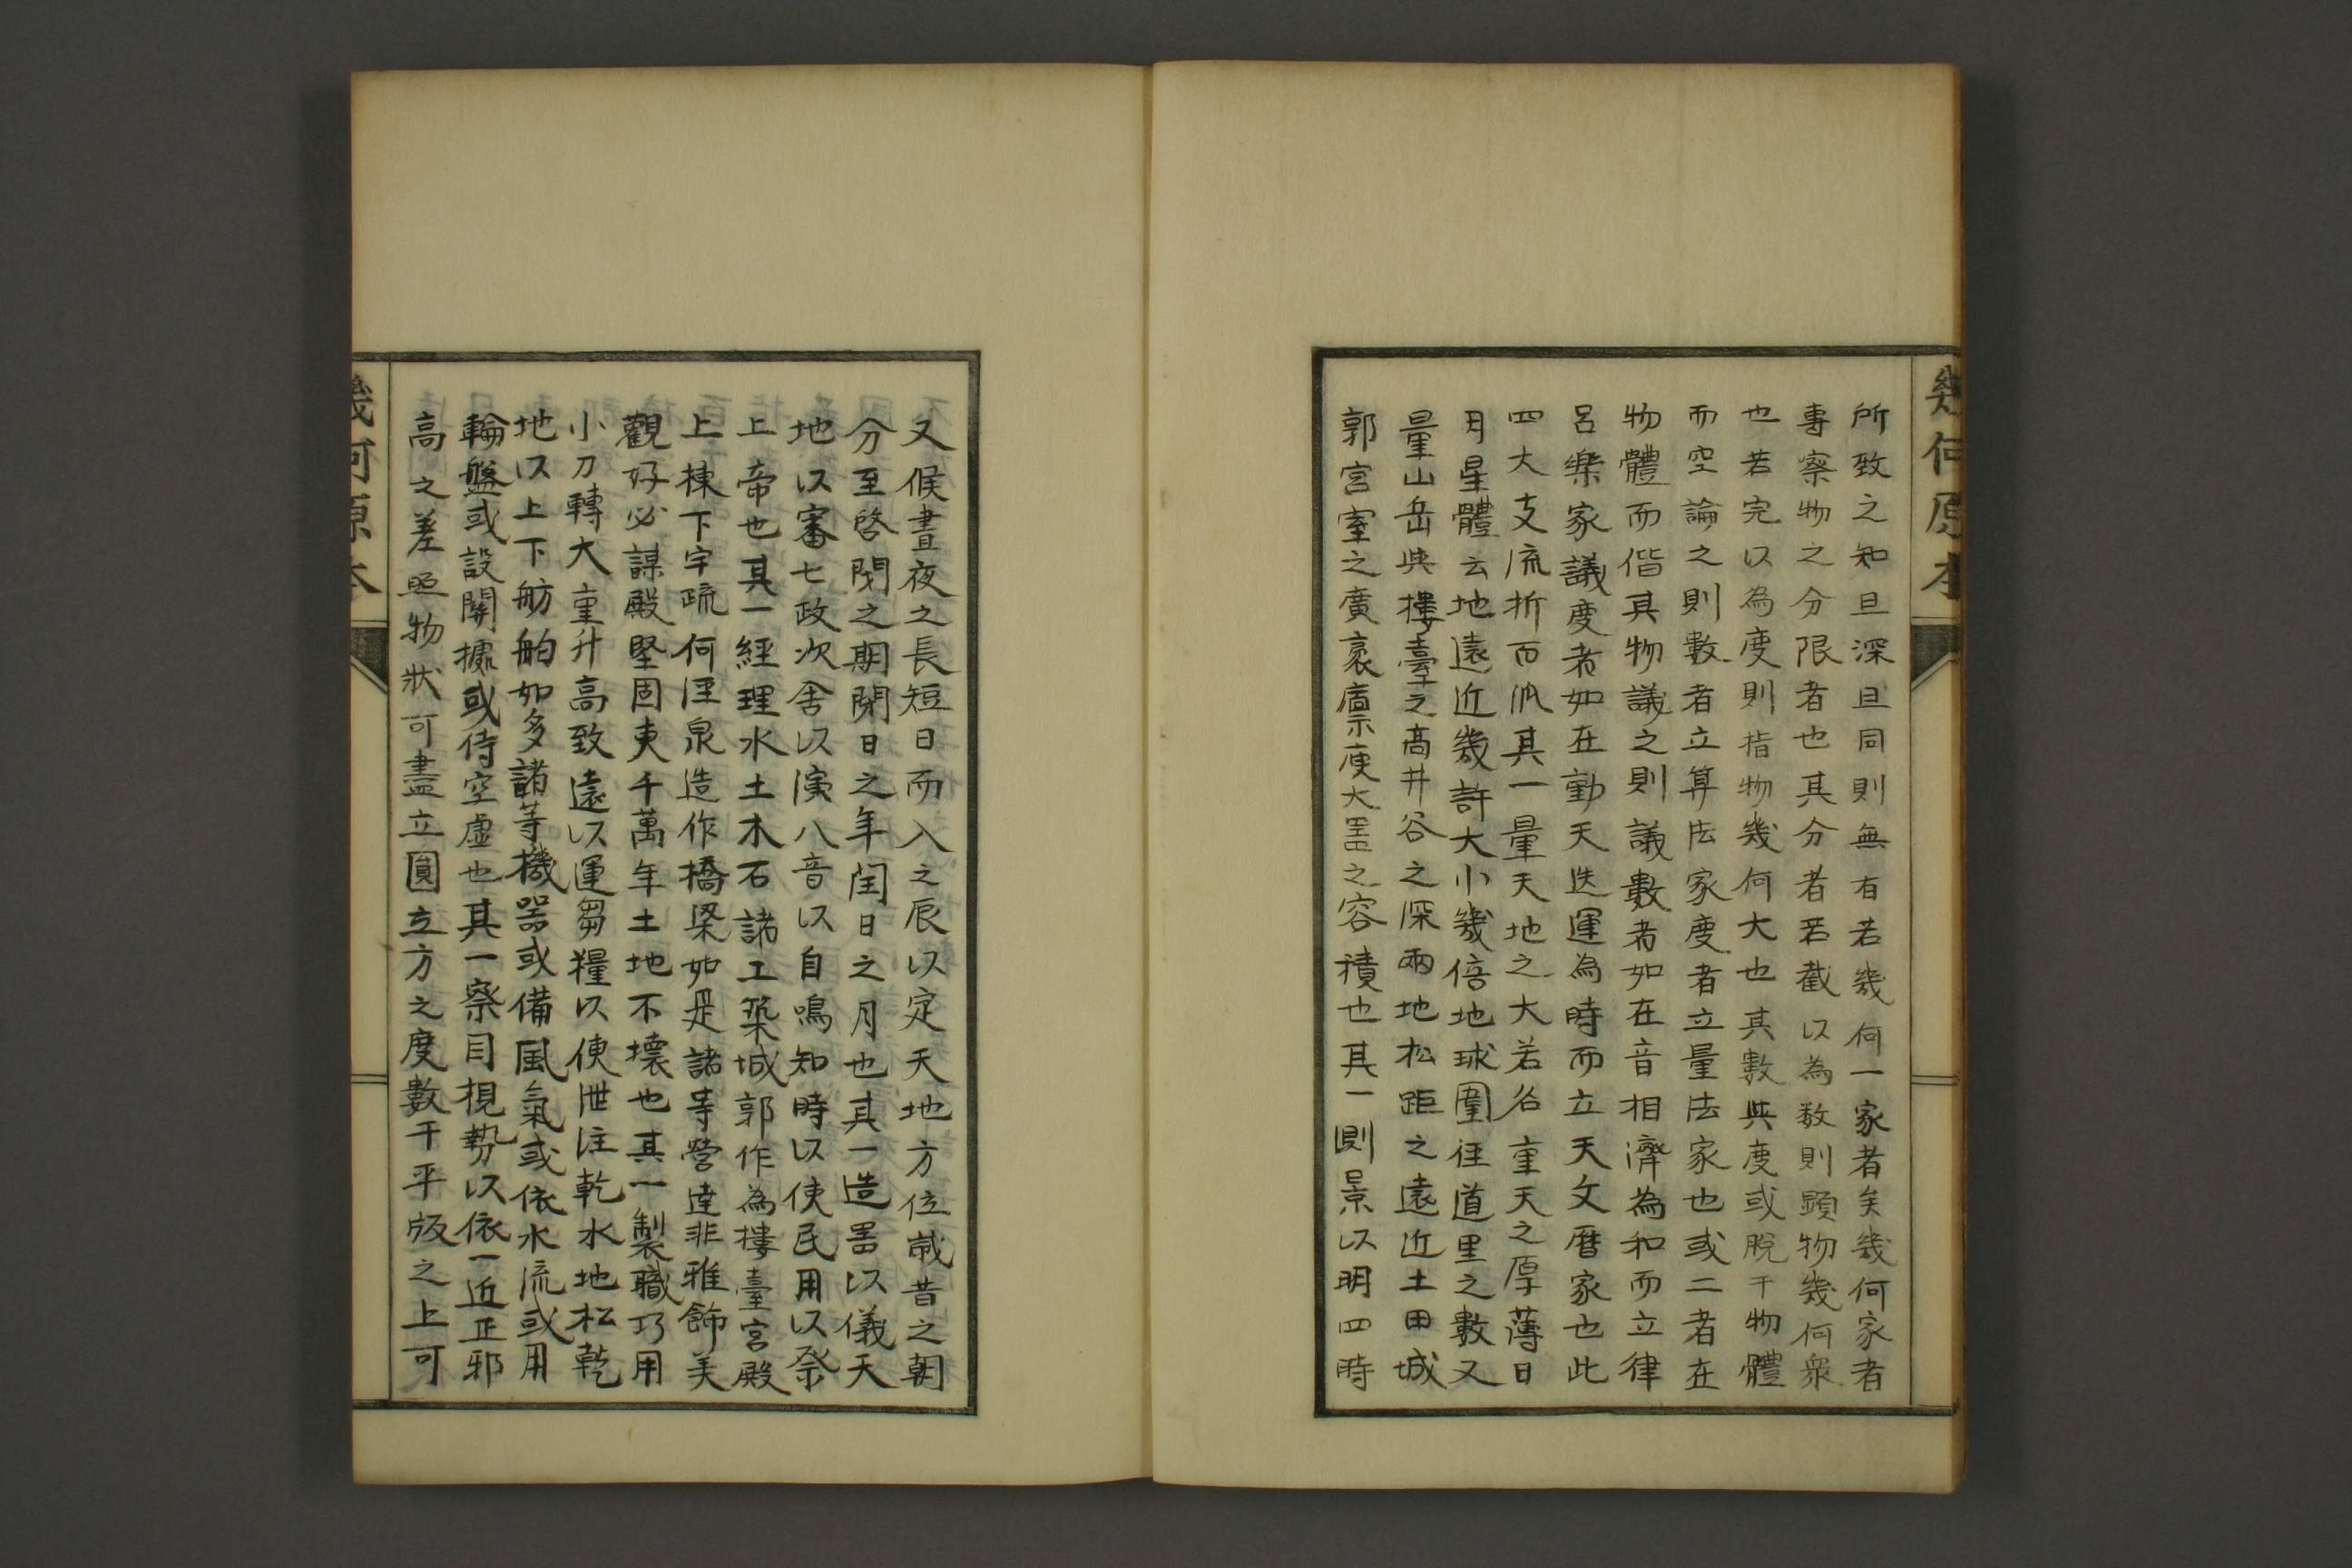 幾何原本
所致之知且深且固則無有若幾何一家者矣幾何家者
專察物之分限者也其分者若截以為数則顯物幾何衆
也若完以為度則指物幾何大也其數與度或脫于物體
而空論之則數者立算法家度者立量法家也或二者在
物體而偕其物議之則議數者如在音相濟為和而立律
呂樂家議度者如在動天迭運為時而立天文曆家也此
四大支流折而派其一量天地之大若各重天之厚薄日
月星體云地遠近幾許大小幾倍地球圍徑道里之數又
量山岳與樓臺之高井谷之深兩地松距之遠近土田城
郭宮室之廣袤廩庾大噐之容積也其一測景以明四時
又候晝夜之長短日而入之辰以定天地方位歲昔之朝
分至啓閉之期閏日之年閏日之月也其一造噐以儀天
地以審七政次舍以演八音以自鳴知時以使民用以祭
上帝也其一經理水土木石諸工築城郭作為樓臺宮殿
上棟下宇疏何注泉造作橋梁如是諸等營建非雅飾美
觀好必謀殿堅固更千萬年土地不壞也其一製職巧用
小刀轉大重升高致遠以運芻糧以便泄注乾水地松乾
地以上下舫舶如多諸等機器或備風氣或依水流或用
輪盤或設關據或侍空虛也其一察目視勢以依一近正邪
高之差照物狀可盡立圓立方之度數于平版之上可
幾何原本